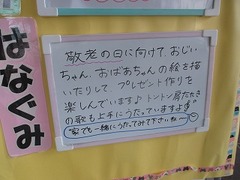 はなぐみ
敬老の日に向けて、おじい
ちゃん、おばあちゃんの絵を描
いたりして、プレゼント作りを
楽しんでいます♪トントン肩たたき
の歌も上手にうたっていますよ
家でも一緒にうたってみて下さいね